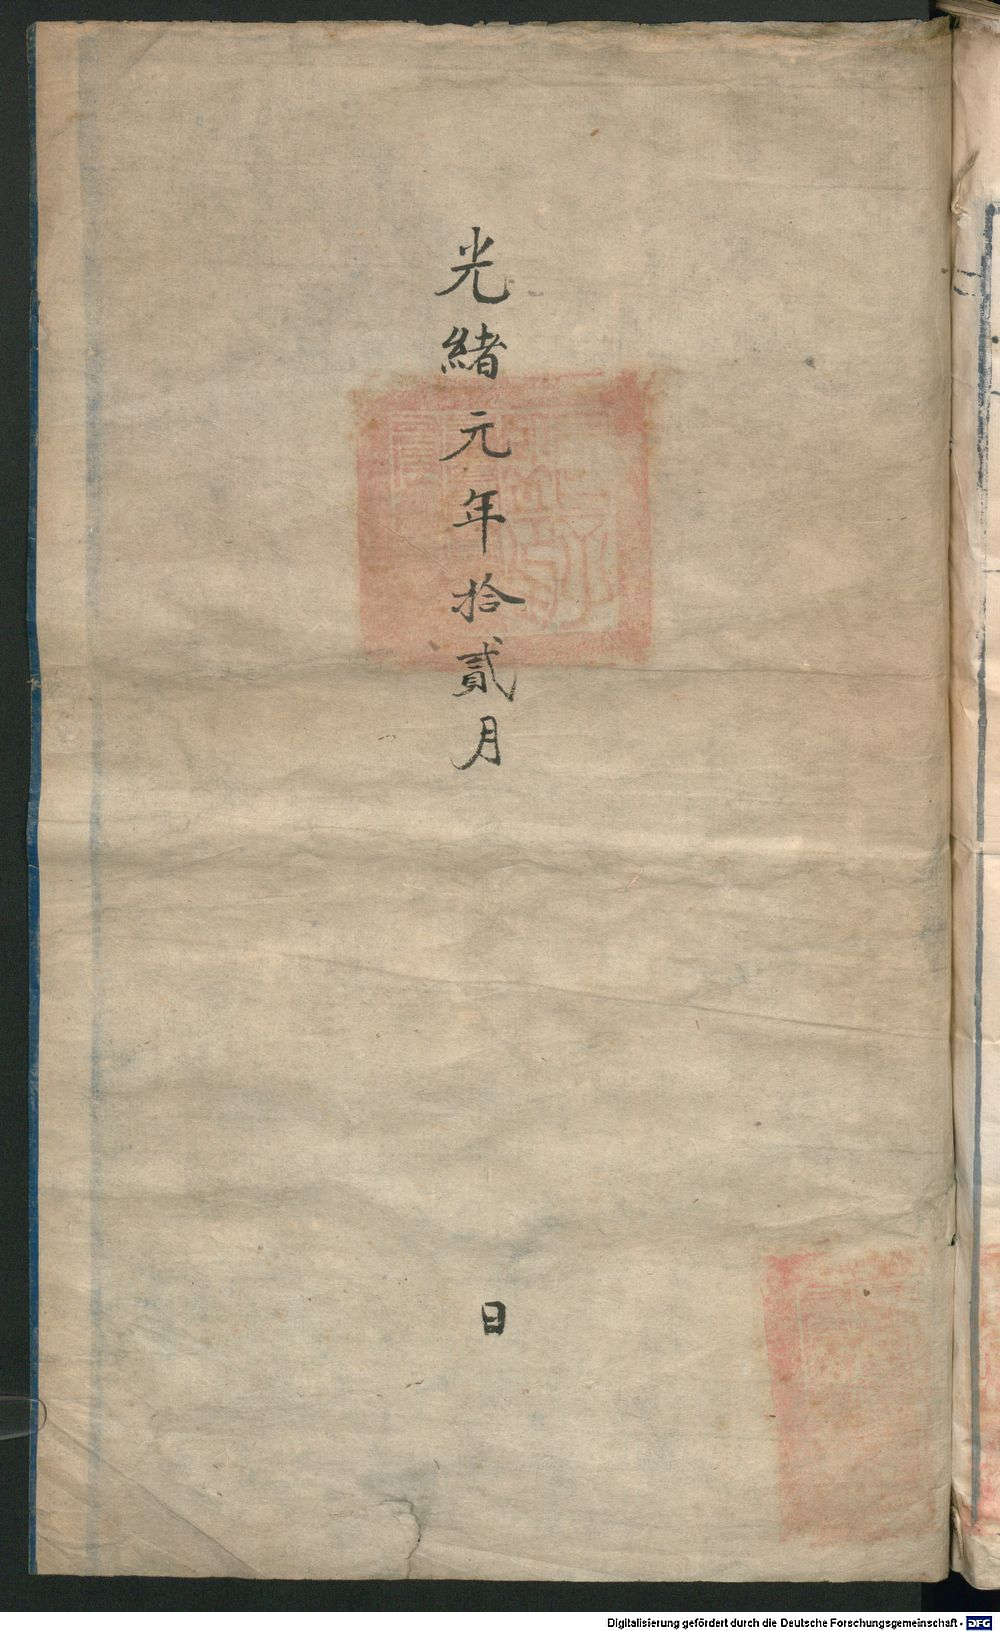 光緒元年拾貳月
日
Digitalisierung gefördert durch die Deutsche Forschungsgemeinschaft - DFG